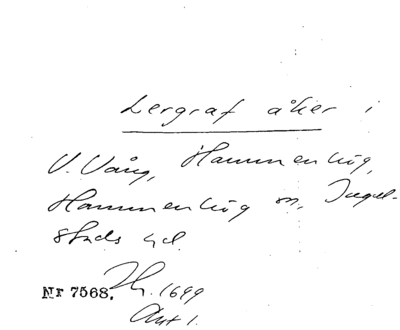 Lergraf åker i
V. Vång, Hammenhög,
Hammenhög sn, Ingel-
stads hd.
Nr 7568. 1699
Akt 1.